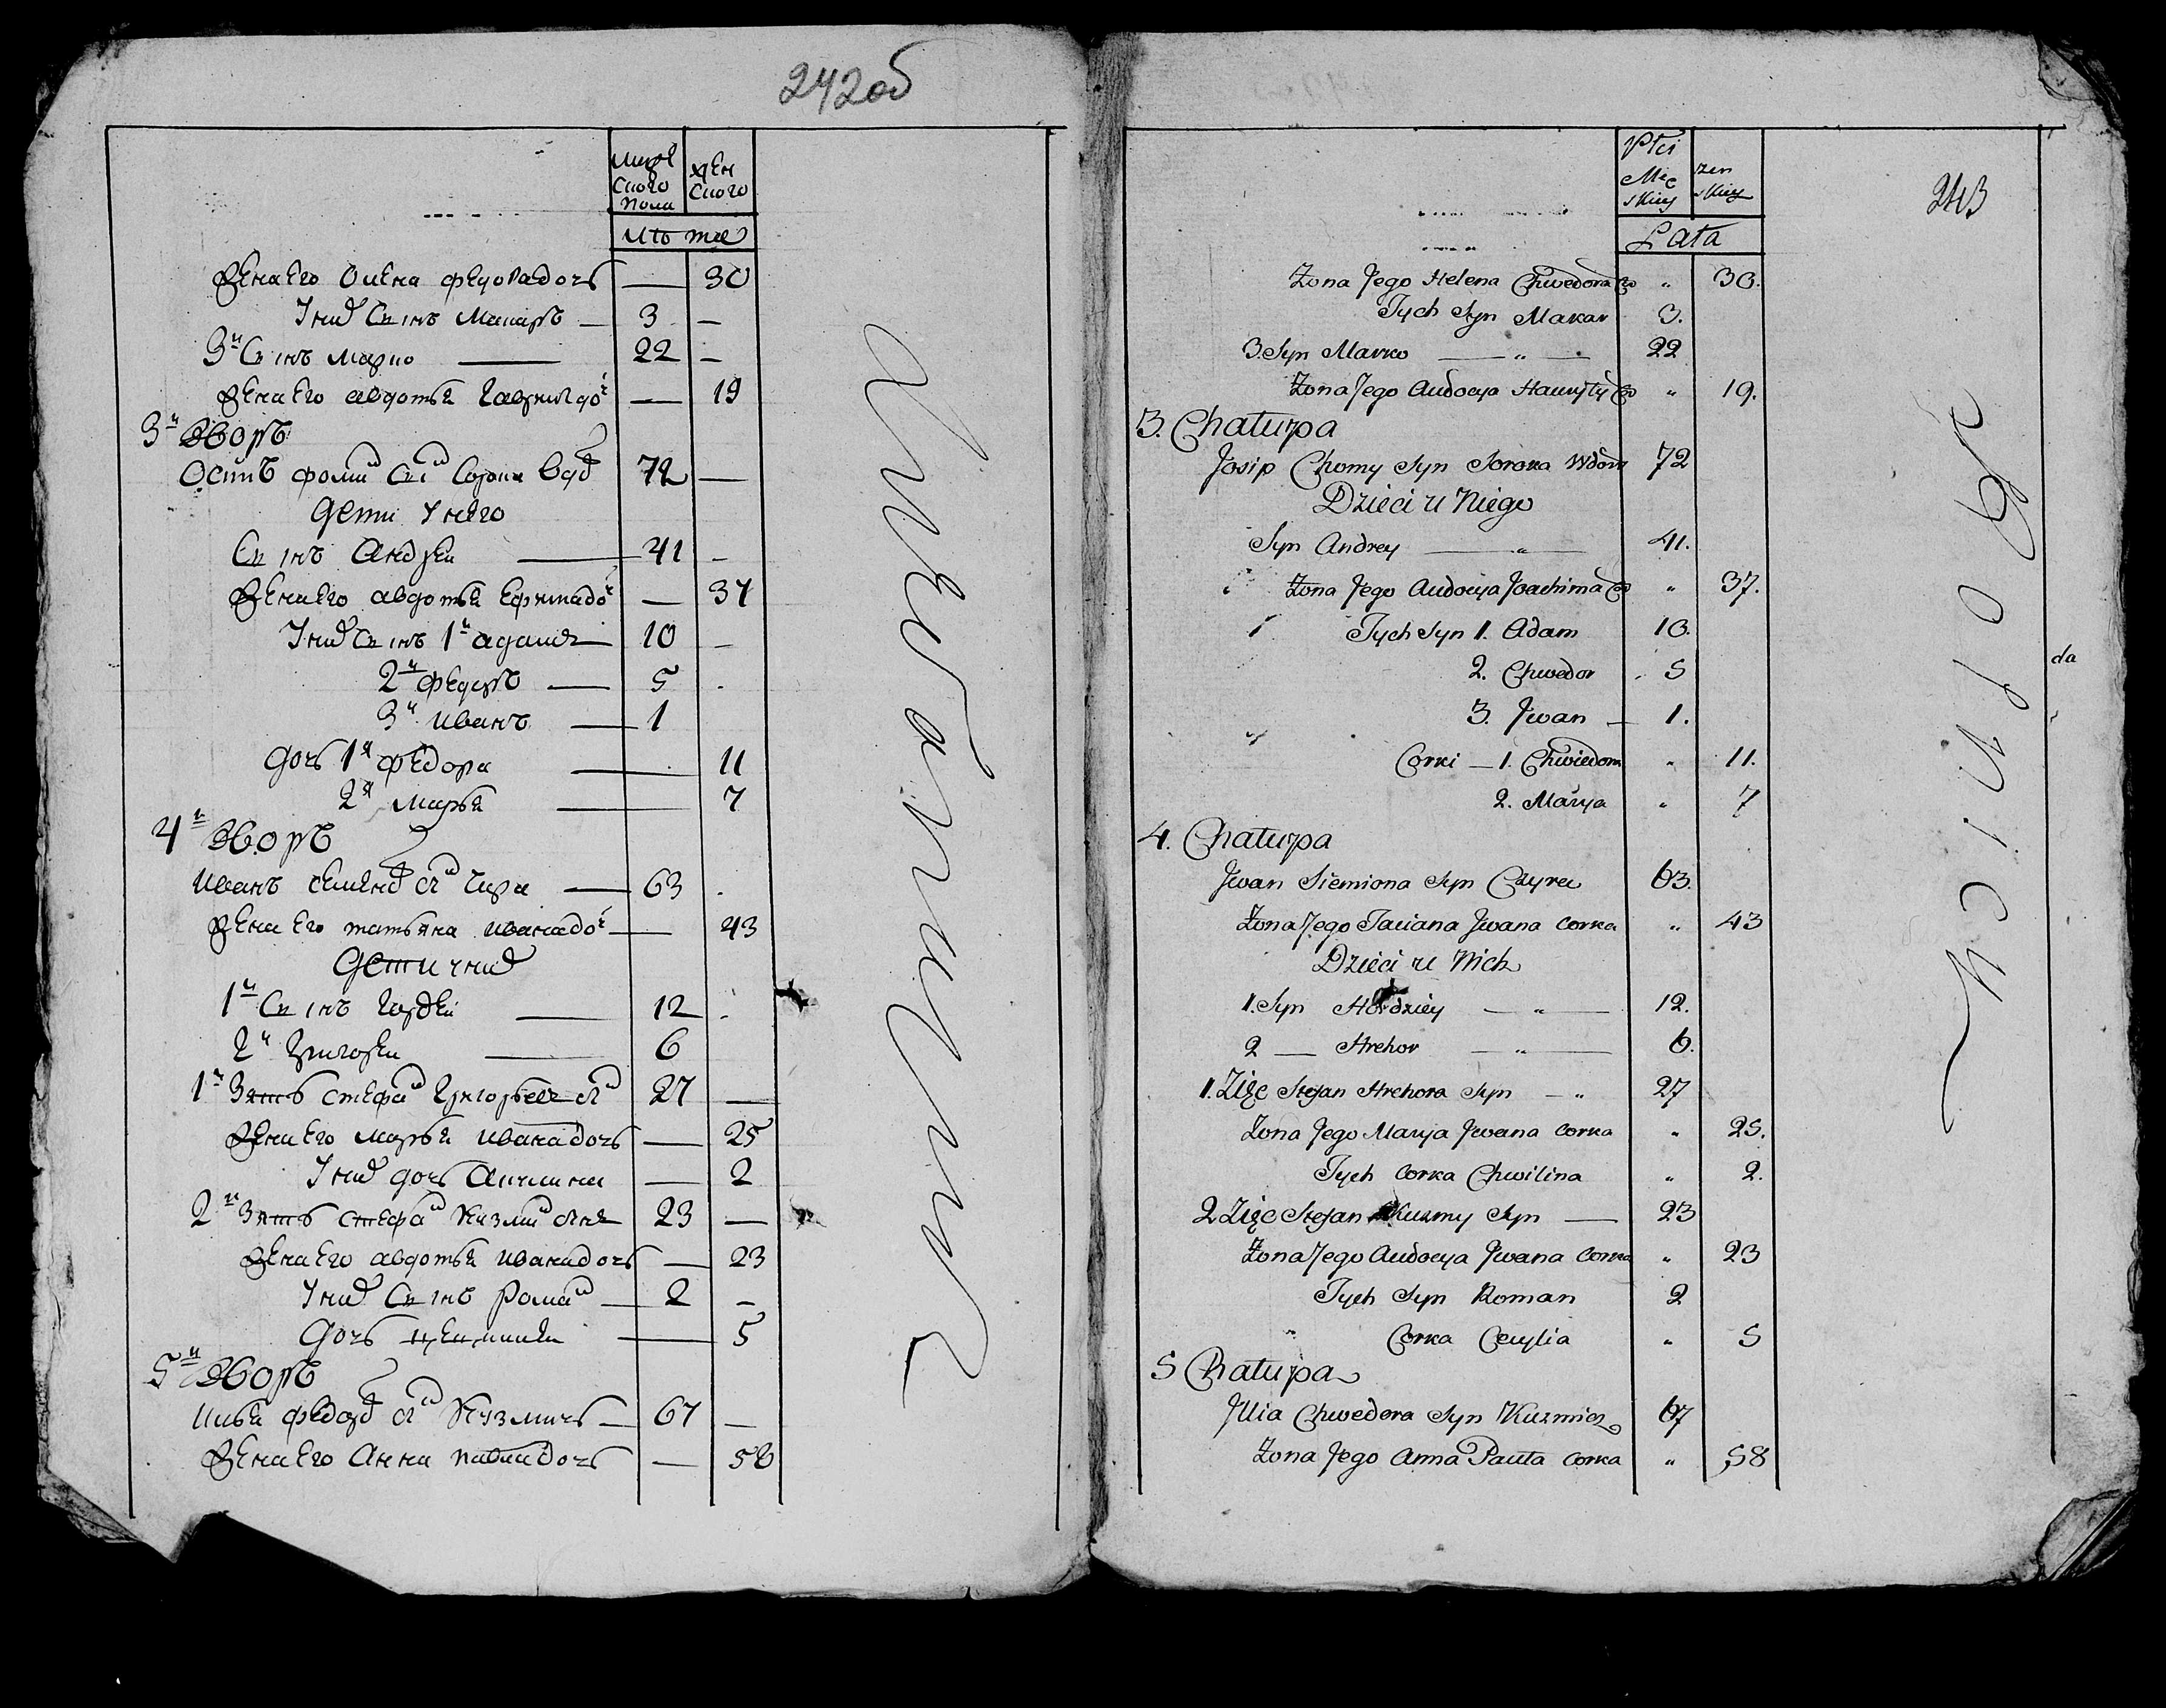 242об
мужеского пола
женского
лѣта
жена его Олена федорадочь — 30
У них Сынъ Макаръ — 3 —
3й Сынъ Марко — 22 —
жена его авдотья гаврилдоч — 19
3й Дворъ
Осипъ фомин Сын Сорока вдов 72 —
Дети У него
Сынъ Андреи — 41 —
жена его авдотья Ефимадоч — 37
У них Сынъ 1й адамъ — 10 —
2й федоръ — 5
3й иванъ — 1
дочь 1я федора — 11
2я марья — 7
4й Дворъ
иванъ семенов сын Чира — 63
жена его татьяна ивана доч — 43
Дети у них
1й Сынъ гордеи — 12
2й григореи — 6
1й Зять стефан григорьевъ сын 27 —
жена его марья иванадочь — 25
У них дочь — 2
2й Зять стефан Кузмин сынъ 23 —
жена его авдотья иванадочь — 23
У них Сынъ Роман — 2 —
Дочь — 5
5й Дворъ
илья федоров сын Кузмичь — 67 —
жена его Анна павладочь — 58
243
Płci Męskiey
żenskiey
Lata
Żona Jego Helena Chwedora Co " 30.
Tych Syn Makar 3.
3. Syn Marko — " — 22
Żona Jego Audocya Hauryły Co " 19.
3. Chałupa
Josip Chomy Syn Soroka Wdow 72
Dzieci u Niego
Syn Andrey — " — 41.
Żona Jego Audocya Joachima Co " 37.
Tych Syn 1. Adam 10.
2. Chwedor 5
3. Jwan — 1.
Corki — 1. Chwiedora " 11.
2. Marya " 7
4. Chałupa
Jwan Siemiona Syn Czyra 63.
Żona Jego Taciana Jwana Corka " 43
Dzieci u Nich
1. Syn Hordziey — " — 12.
2 — Hrehor — " — 6.
1. Zięc Stefan Hrehora Syn — " 27
Żona Jego Marya Jwana Corka " 25.
Tych Corka Chwilina " 2.
2 Zięc Stefan Kuzmy Syn — 23
Żona Jego Audocya Jwana Corka " 23
Tych Syn Roman 2
Corka Cecylia " 5
5 Chałupa
Jllia Chwedora Syn Kuzmicz 67
Żona Jego Anna Pauła Corka " 58
da